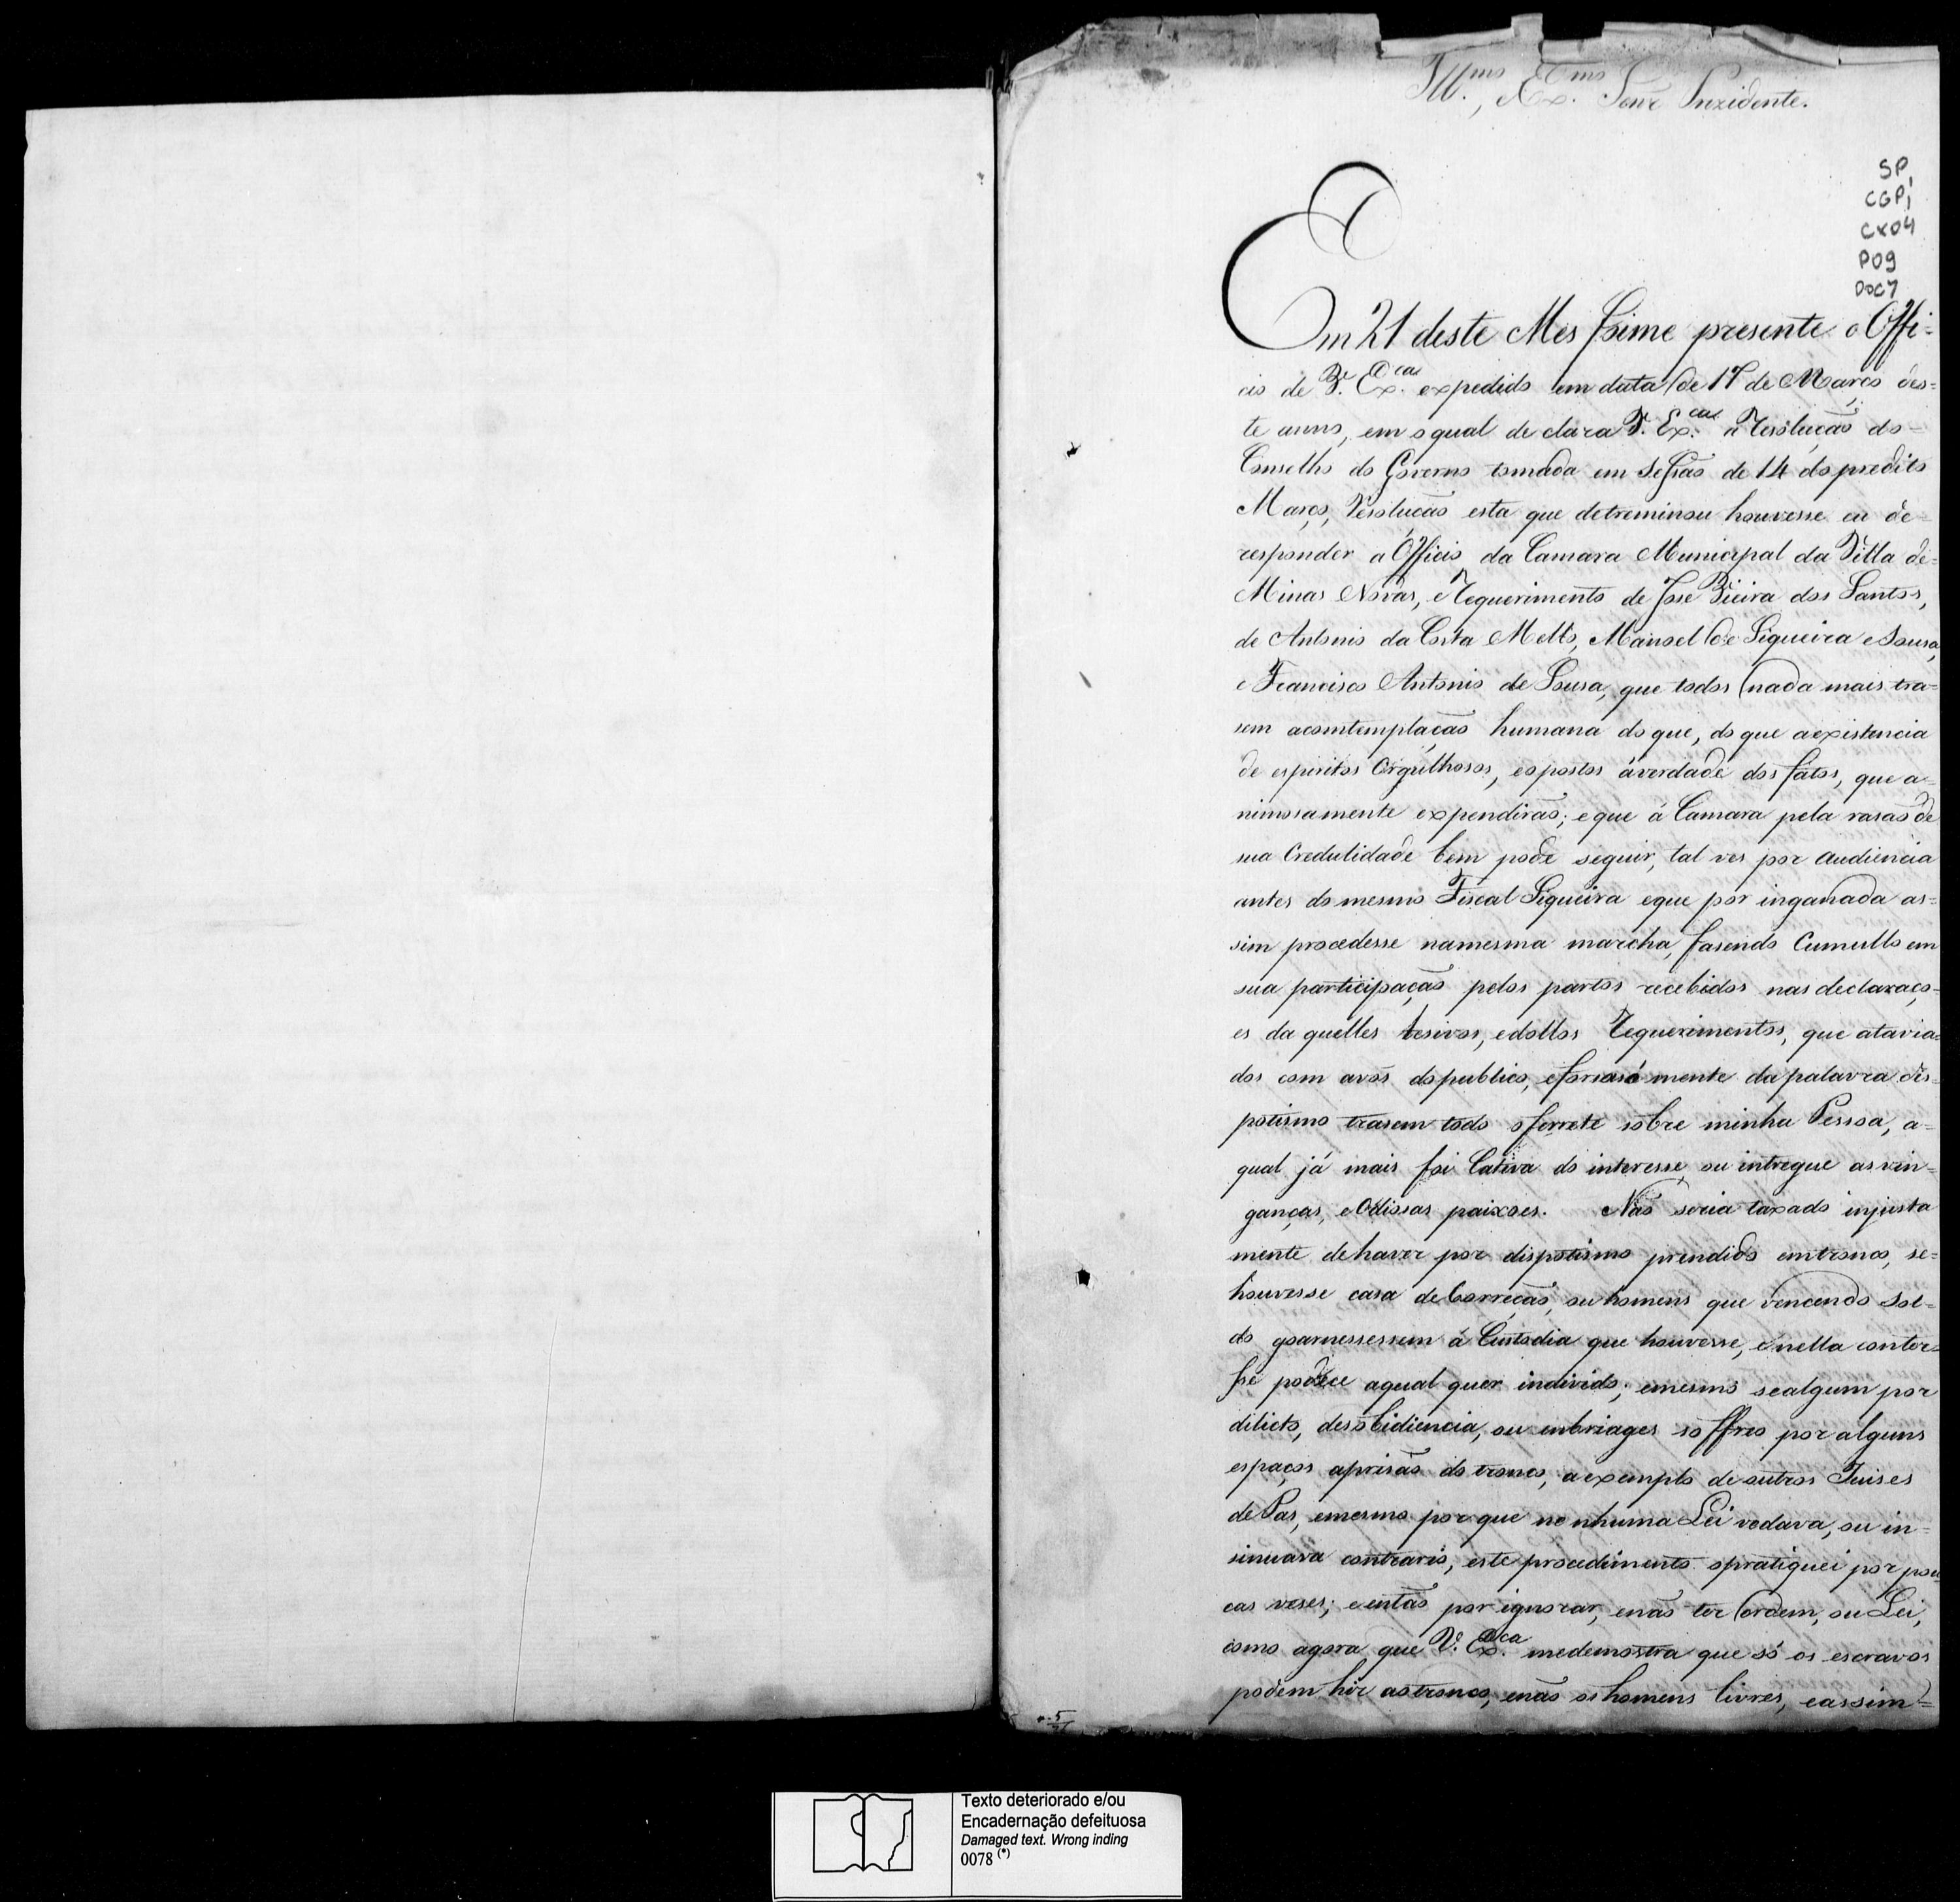 Ill.mo, Ex.mo Senr Prezidente.
SP,
CGP,
CX04
P09
DOC7
Em 21 deste Mes foime presente o Offi-
cio de V. Ex.cia expedido em data de 17 de Março des=
te anno, em o qual declara V. Ex.cia a Resolução do-
Conselho do Governo tomada em Seſsão de 14 do predito
Março, Resolucão esta que detreminou houvesse eu de-
responder a Officio da Camara Municipal da Villa de=
Minas Novas, e Requerimento de Jose Vieira dos Santos,
de Antonio da Costa Mello, Manoel de Siqueira e Sousa,
e Francisco Antonio de Sousa, que todos nada mais tra=
sem acomtemplação humana do que, do que aexistencia
de espiritos Orgulhosos, eopostos áverdade dos fatos, que a-
nimosamente expendirão; eque á Camara pela rasão de
sua Credulidade bem pode seguir, tal ves por audiencia
antes do mesmo Fiscal Siqueira eque por inganada as=
sim procedesse namesma marcha, fasendo Cumullo em
sua participação pelos partos recebidos nas declaraço-
es da quelles lesivos, edollos Requerimentos, que atavia=
dos com avós dopublico, eforsasó mente da palavra des-
potismo trasem todo oferrete sobre minha Pessoa, a=
qual já mais foi Cativa do interesse ou intregue as vin-
ganças, eOdiosas paixoes. Não seria taxado injusta
mente dehaver por dispotismo prendido emtronco, se=
houvesse casa deCorrecão, ou homens que vencendo Sol-
do goarnessessem á Custodia que houvesse, e nella conter=
ſse podece aqual quer individo; emesmo sealgum por
dilicto, desobidiencia, ou enbriages soffreo por alguns
espaços aprisão do tronco, aexemplo de outros Juises
de Pas, emesmo por que nenhuma Lei vedava, ou in=
sinuava contrario, este procedimento opratiquei por pou
cas veses; eentão por ignorar, enão ter ordem, ou Lei,
como agora que V. Ex.ca medemostra que só os escravos
podem hir aotronco, enão os homens livres, eassim=
Texto deteriorado e/ou
Encadernação defeituosa
Damaged text. Wrong inding
0078 (*)